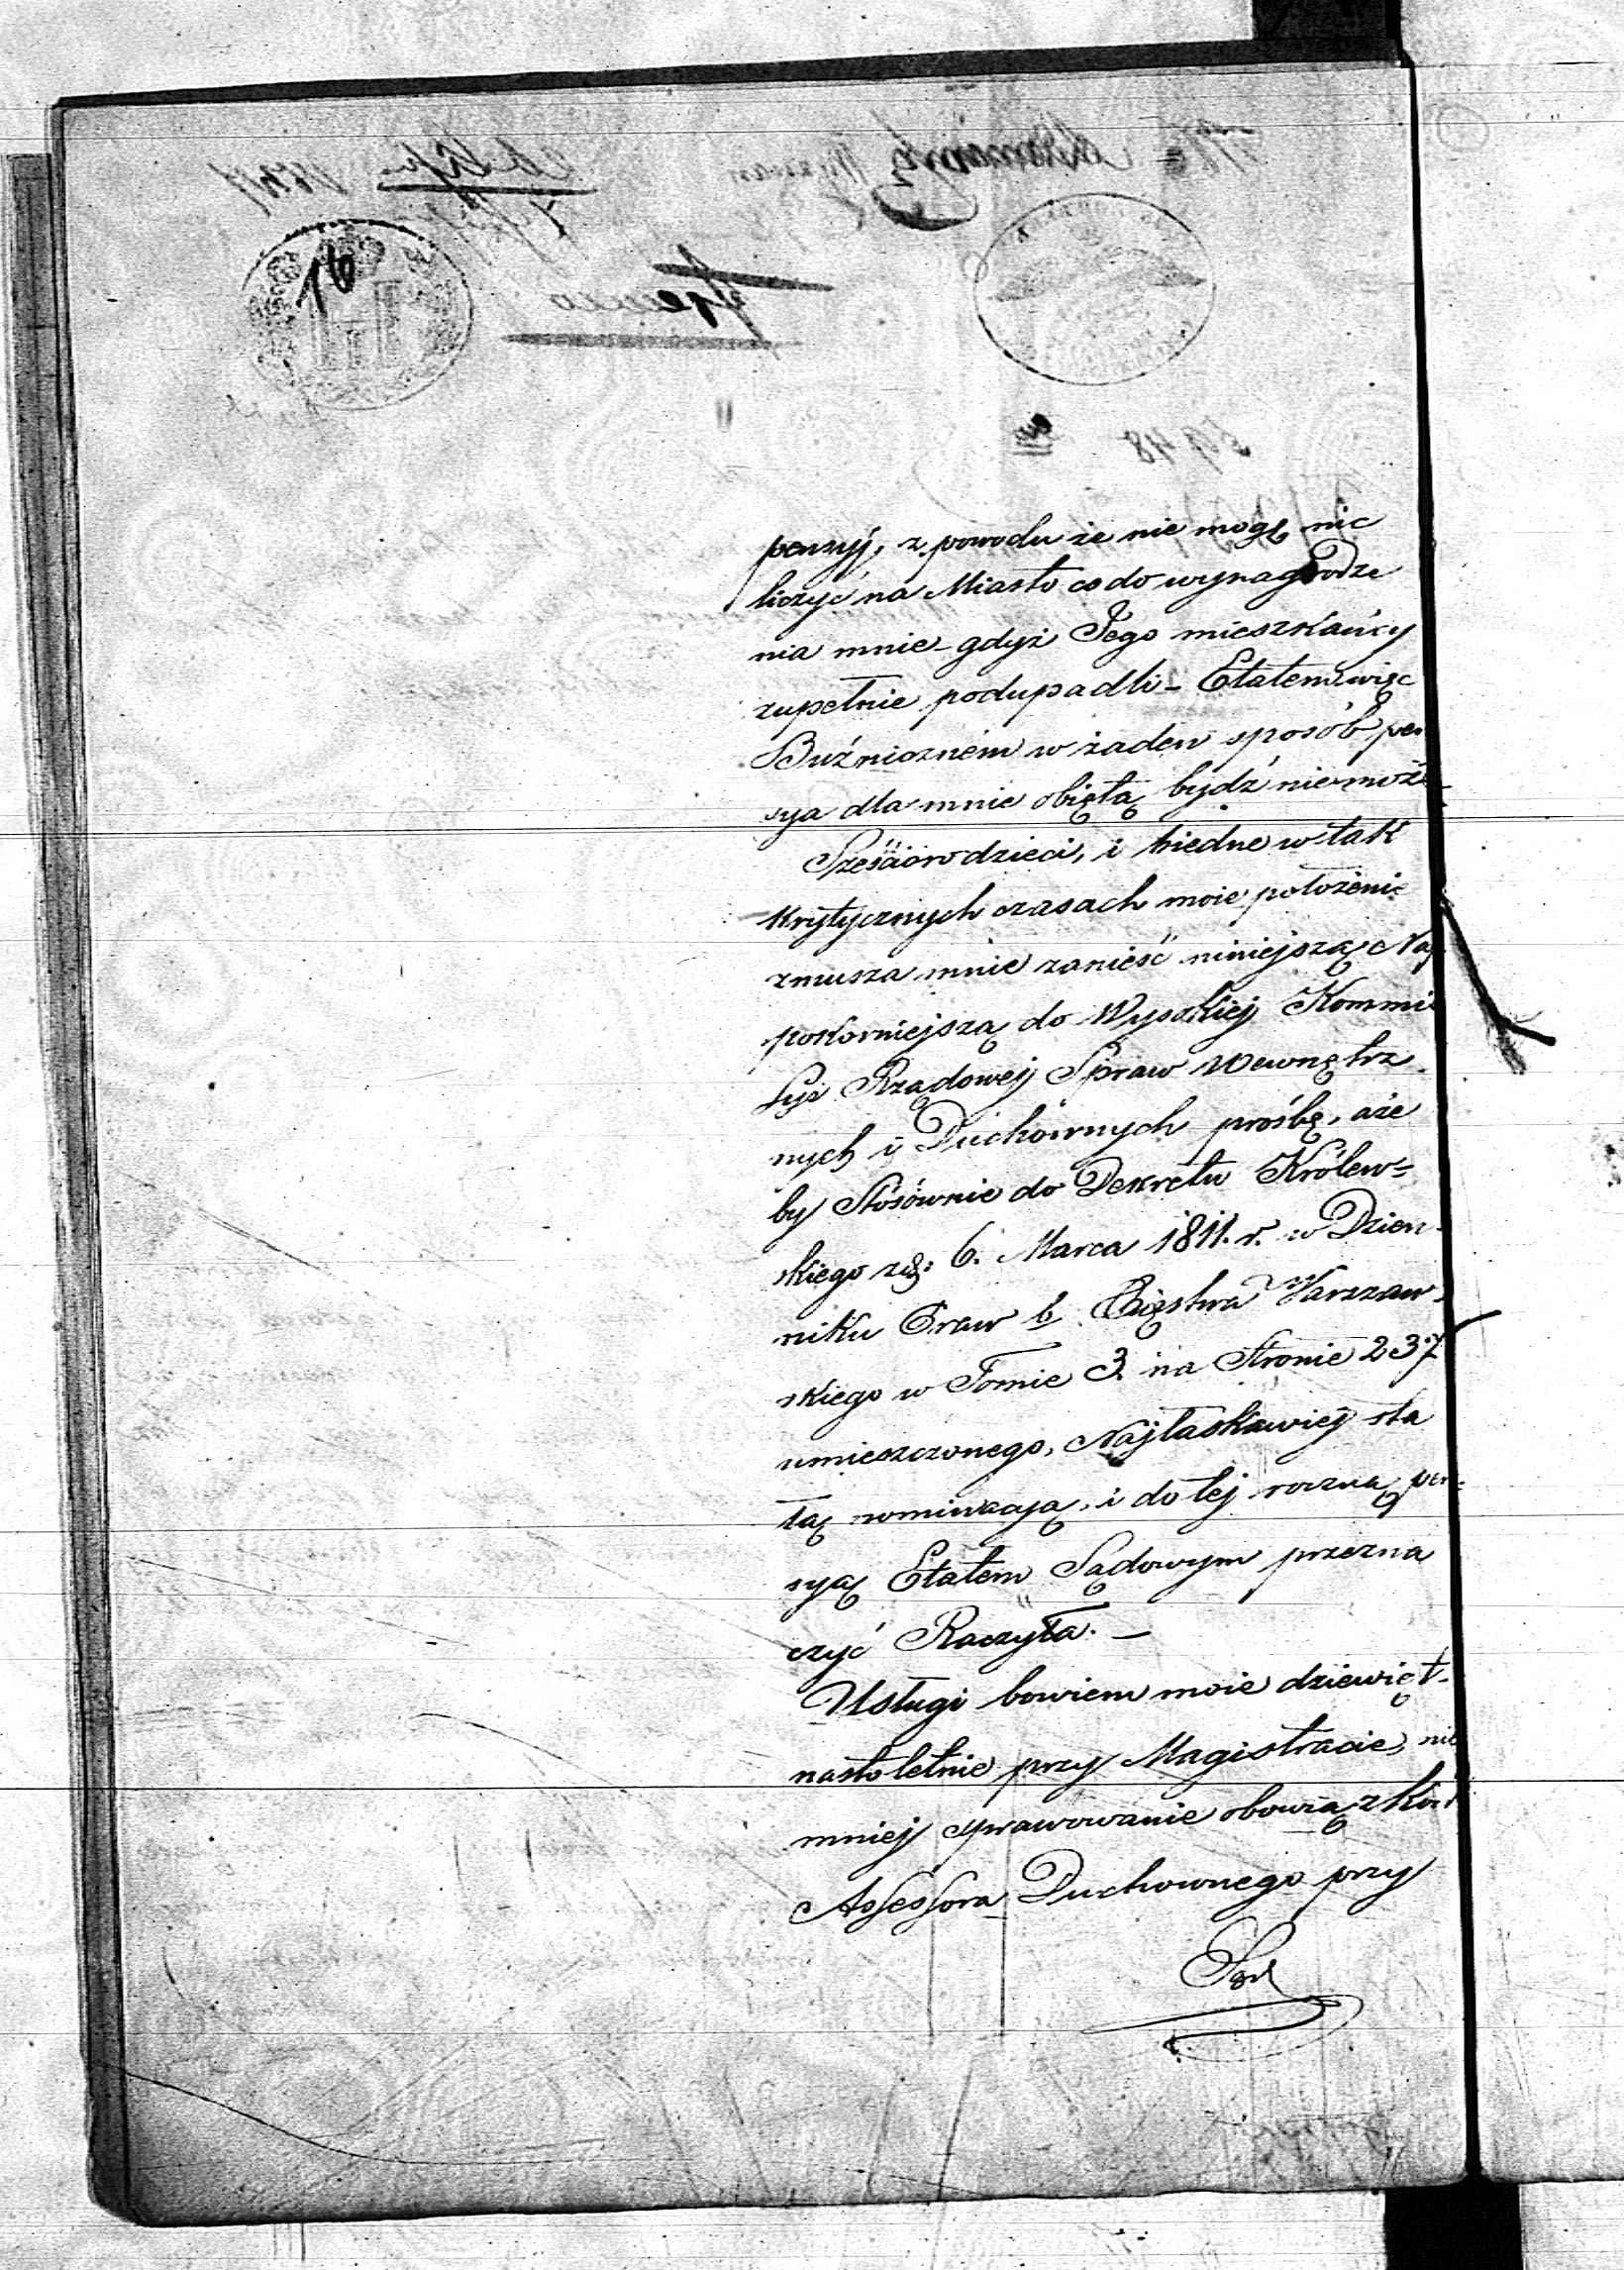 16
penzyj, z powodu że nie mogę nic
liczyć na Miasto co do wynagrodze
nia mnie - gdyż Jego mieszkańcy
zupełnie podupadli - Etatem więc
Buźnicznem w żaden sposób pen
sya dla mnie obiętą bydź nie może
Sześcioro dzieci, i biedne w tak
krytycznych czasach moie położenie
zmusza mnie zanieść niniejszą Naj
pokorniejszą do Wysokiej Kommis
syi Rządowej Spraw Wewnętrz
nych i Duchownych prośbę, aże
by Stósównie do Dekretu Królew=
skiego z d: 6. Marca 1811. r. w Dzien
niku Praw b. Xięstwa Warszaw
skiego w Tomie 3 na Stronie 237
umieszczonego, Najłaskawiej sta
łą nominacyą, i do tej roczną pen=
syą Etatem Sądowym przezna
czyć Raczyła. —
Usługi bowiem moie dziewięt-
nastoletnie przy Magistracie, nie
mniej sprawowanie obowiązków
Assessora Duchownego przy